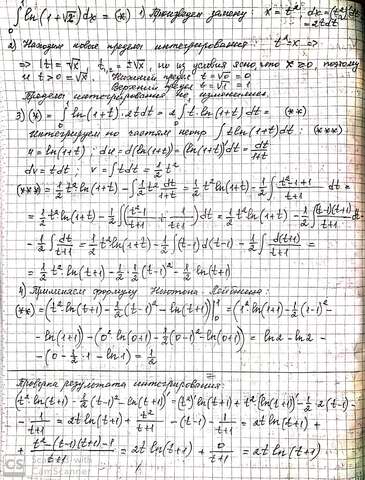 ∫₀¹ ln(1+√x)dx = (*) 1) Произведем замену: x = t² dx = (t²)'dt = 2tdt
2) Находим новые пределы интегрирования t² = x =>
=> |t| = √x, t₁,₂ = ±√x, но из условия ясно, что x ≥ 0, поэтому
и t > 0 = √x. Нижний предел t = √0 = 0
Верхний предел t = √1 = 1
Пределы интегрирования не изменились.
3) (*) = ∫₀¹ ln(1+t)·2tdt = 2∫₀¹ t·ln(1+t)dt = (**)
Интегрируем по частям неопр ∫t ln(1+t)dt: (***)
u = ln(1+t); du = d(ln(1+t)) = (ln(1+t))'dt = dt/(1+t)
dv = tdt; v = ∫tdt = 1/2 t²
(***) = 1/2 t² ln(1+t) − ∫1/2 t² dt/(t+1) = 1/2 t² ln(1+t) − 1/2 ∫(t²−1+1)/(t+1) dt =
= 1/2 t² ln(1+t) − 1/2 ∫((t²−1)/(t+1) + 1/(t+1))dt = 1/2 t² ln(1+t) − 1/2 ∫(t−1)(t+1)/(t+1) dt −
− 1/2 ∫dt/(t+1) = 1/2 t² ln(1+t) − 1/2 ∫(t−1)d(t−1) − 1/2 ∫d(t+1)/(t+1) =
= 1/2 t²·ln(t+1) − 1/2·1/2 (t−1)² − 1/2 ln(t+1)
4) Применяем формулу Ньютона Лейбница:
(**) = (t² ln(t+1) − 1/2 (t−1)² − ln(t+1))|₀¹ = (1² ln(1+1) − 1/2 (1−1)² −
− ln(1+1)) − (0² ln(0+1) − 1/2 (0−1)² − ln(0+1)) = ln2 − ln2 −
− (0 − 1/2·1 − ln1) = 1/2
Проверка результата интегрирования:
(t² ln(t+1) − 1/2 (t−1)² − ln(t+1))' = (t²)' ln(t+1) + t² (ln(t+1))' − 1/2 2(t−1) −
− 1/(t+1) = 2t ln(t+1) + t²/(t+1) − (t−1) − 1/(t+1) = 2t ln(t+1) +
+ (t² − (t−1)(t+1) − 1)/(t+1) = 2t ln(t+1) + 0/(t+1) = 2t ln(t+1)
CS
CamScanner